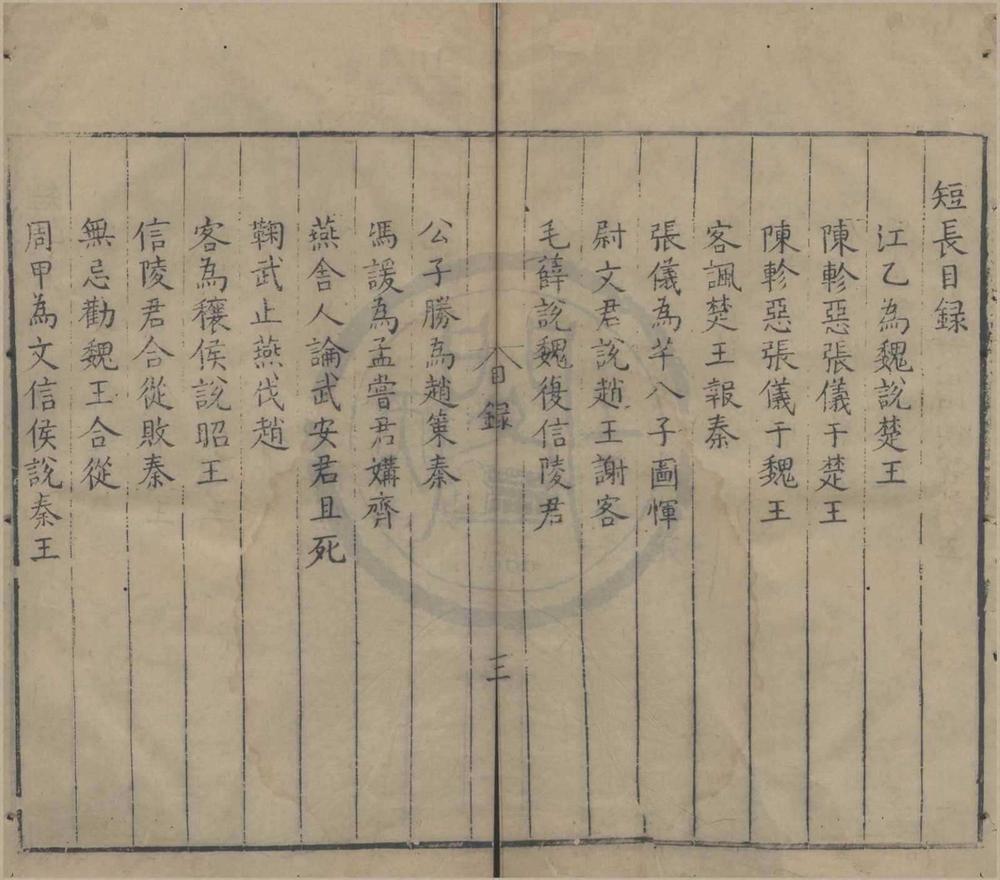 短長目録
江乙為魏說楚王
陳軫惡張儀于楚王
陳軫惡張儀于魏王
客諷楚王報秦
張儀為芊八子啚惲
尉文君說趙王謝客
毛薛說魏復信陵君
目録
三
公子勝為趙策秦
馮諼為孟嘗君媾齊
燕舍人論武安君且死
鞠武止燕伐趙
客為穰侯說昭王
信陵君合從敗秦
無忌勸魏王合從
周甲為文信侯說秦王